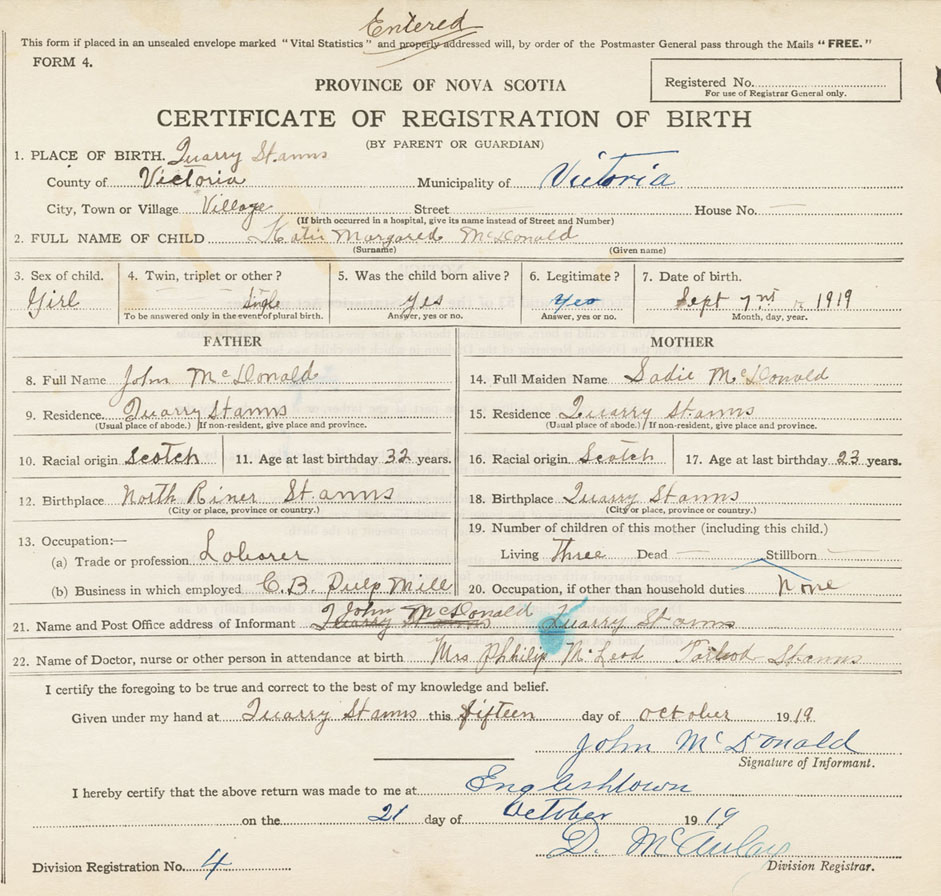 Entered
This form if placed in an unsealed envelope marked "Vital Statistics" and properly addressed will, by order of the Postmaster General pass through the Mails "FREE."
FORM 4.
Registered No.
For use of Registrar General only.
PROVINCE OF NOVA SCOTIA
CERTIFICATE OF REGISTRATION OF BIRTH
(BY PARENT OR GUARDIAN)
1. PLACE OF BIRTH. Quarry St. anns
County of Victoria Municipality of Victoria
City, Town or Village Village Street House No. —
(If birth occurred in a hospital, give its name instead of Street and Number)
2. FULL NAME OF CHILD Katie Margared McDonald
(Surname) (Given name)
3. Sex of child. 4. Twin, triplet or other? 5. Was the child born alive? 6. Legitimate? 7. Date of birth.
Girl Single yes yes Sept 7 1919
To be answered only in the event of plural birth. Answer, yes or no. Answer, yes or no. Month, day, year.
FATHER MOTHER
8. Full Name John McDonald 14. Full Maiden Name Sadie McDonald
9. Residence. Quarry St anns 15. Residence Quarry St anns
(Usual place of abode.) If non-resident, give place and province. (Usual place of abode.) If non-resident, give place and province.
10. Racial origin Scotch 11. Age at last birthday 32 years. 16. Racial origin Scotch 17. Age at last birthday 23 years.
12. Birthplace North River St. anns 18. Birthplace Quarry St anns
(City or place, province or country.) (City or place, province or country.)
13. Occupation:— 19. Number of children of this mother (including this child.)
(a) Trade or profession Loborer Living Three Dead — Stillborn —
(b) Business in which employed C.B. Pulp Mill 20. Occupation, if other than household duties None
21. Name and Post Office address of Informant Quarry St anns John McDonald Quarry St anns
22. Name of Doctor, nurse or other person in attendance at birth Mrs Phhilip McLeod St anns
I certify the foregoing to be true and correct to the best of my knowledge and belief.
Given under my hand at Quarry St anns this fifteen day of october 1919
John McDonald
Signature of Informant.
I hereby certify that the above return was made to me at Englishtown
on the 21 day of October 1919
D. McAulay
Division Registration No. 4 Division Registrar.